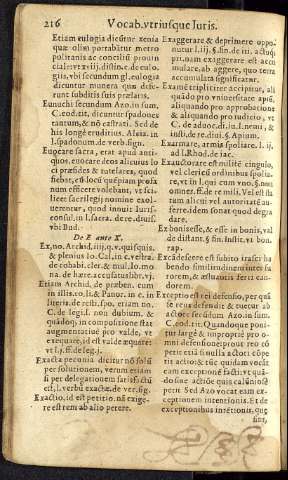 216 Vocab. vtriusque Iuris.
Etiam eulogia dicũtur xenia
quæ olim portabãtur metro
politanis ac concilii prouin
giis, vbi secundum gl. eulogia
dicuntur munera quæ dide-
runt subditi suis prælatis.
Eunuchi secundum Azo. in sum.
C. eod. tit. dicuntur spadones
tantum, & nõ castrati. Sed de
his longè eruditius. Alcia. in
l. spadonum. de verb. sign.
Euocare sacra, erat apud anti-
quos, euocare deos alicuius lo
ci præsides & tutelares, quod
fiebat, cũ locũ quẽpiam profa
num efficere volebant, vt sci-
licet sacrilegij nomine exol-
uerentur, quod innuit Iuris-
consul. in l. sacra. de re. diuis.
vbi Bud.
De E ante X.
Ex, no. Archid. iij. q. v. quisquis.
& plenius Io. Cal. in c. vestra.
de cohabi. cler. & mul. Io. mo
na. de hære. accusatus. lib. vj.
Etiam Archid. de præben. cum
in illis. eo. li. & Panor. in c. in
literis. de resti. spo. etiam no.
C. de leg. l. non dubium. &
quãdoq; in compositione stat
augmentatiue pro valde, vt
exequare, id est valde æquare:
vt l. j. ff. de leg. j.
Exacta pecunia dicitur nõ solũ
per solutionem, verum etiam
si per delegationem satisfactũ
est, l. verbũ exactæ. de ver. sig.
Exactio, id est petitio. nã exige-
re est rem ab alio petere.
Exaggerare & deprimere oppo-
nũtur. l. iij. §. fin. de iit. actuq;
pri. nam exaggerare est accu
mulare. ab aggere, quo terra
accumulata significatur.
quãdo pro vniuersitate apiũ,
aliquando pro approbatione
& aliquando pro iudicio, vt
C. de aduoc. di. iu. l. nemi, &
insti. de re. diui. §. Apium.
Exarmare, armis spoliare. l. ij.
ad l. Rhod. de iac.
Exauctorare est milite cingulo,
vel clericũ ordinibus spolia-
re, vt in l. qui cum vno. §. non
omnes. ff. de re mili. Vel est ali
cum alicui vel autoritatẽ au-
ferre. idem sonat quod degra
dare.
Ex bonis esse, & esse in bonis, val
de distant. §. fin. instit. vi bon.
rap.
Excãdescere est subito irasci ha
bendo similitudinem inter fu
rorem, & æstuantis ferri can-
dorem.
Exceptio est rei defensio, per quã
se reus defendit & tuetur ab
actore secundum Azo. in sum.
C. eod. tit. Quandoque poni-
tur largè & impropriè pro o-
mni defensione: prout reo cõ
pete etiã si nulla actori cõpe
tit actio: & tũc quidam vocãt
eam exceptionẽ facti: vt quã-
do sine actiõe quis calũniose
petit. Sed Azo vocat eam ex-
ceptionem intentionis. Et de
exceptionibus insẽtionis, quę
sunt,